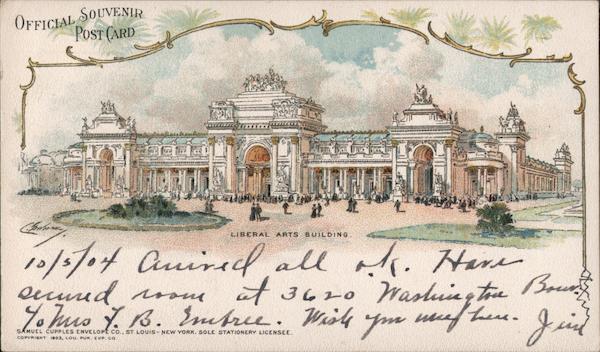 OFFICIAL SOUVENIR
POST CARD
LIBERAL ARTS BUILDING.
10/5/04 Arrived all o.k. Have
secured room at 3620 Washington Boul.
℅ Mrs T. B. Embree. Wish you were here. Jim
SAMUEL CUPPLES ENVELOPE CO., ST LOUIS - NEW YORK. SOLE STATIONERY LICENSEE.
COPYRIGHT 1903, LOU. PUR. EXP. CO.